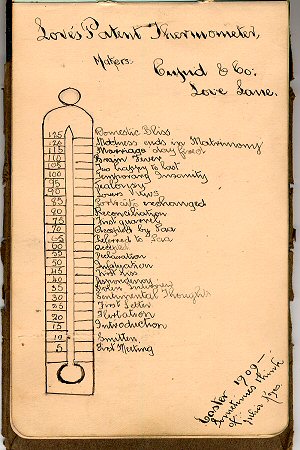 Love's Patent Thermometer,
Makers.
Cupid & Co:
Love Lane.
125 Domestic Bliss
120 Madness ends in Matrimony
115 Marriage day fixed
110 Brain Fever
105 Too happy to last
100 Temporary Insanity
95 Jealousy
90 Lovers Vows
85 Portraits exchanged
80 Reconciliation
75 First quarrel
70 Accepted by Paa
65 Referred to Paa
60 Accepted
55 Declaration
50 Infatuation
45 First Kiss
40 Despondency
35 Stolen
30 Sentimental Thoughts
25 First Letter
20 Flirtation
15 Introduction
10 Smitten
5 First Meeting
Easter 1909 —
Sometimes think
of